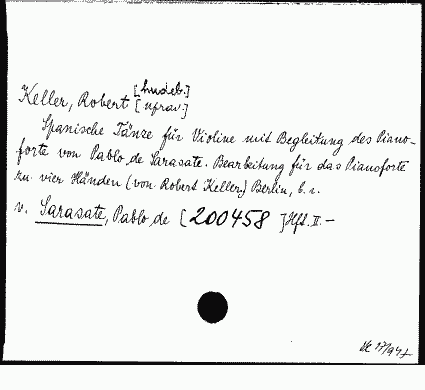 [hudeb.]
Keller, Robert [uprav.]
Spanische Tänze für Violine mit Begleitung des Piano-
forte von Pablo de Sarasate. Bearbeitung für das Pianoforte
zu vier Händen (von Robert Keller.) Berlin, b. r.
v. Sarasate, Pablo de [200458] Hft. II. –